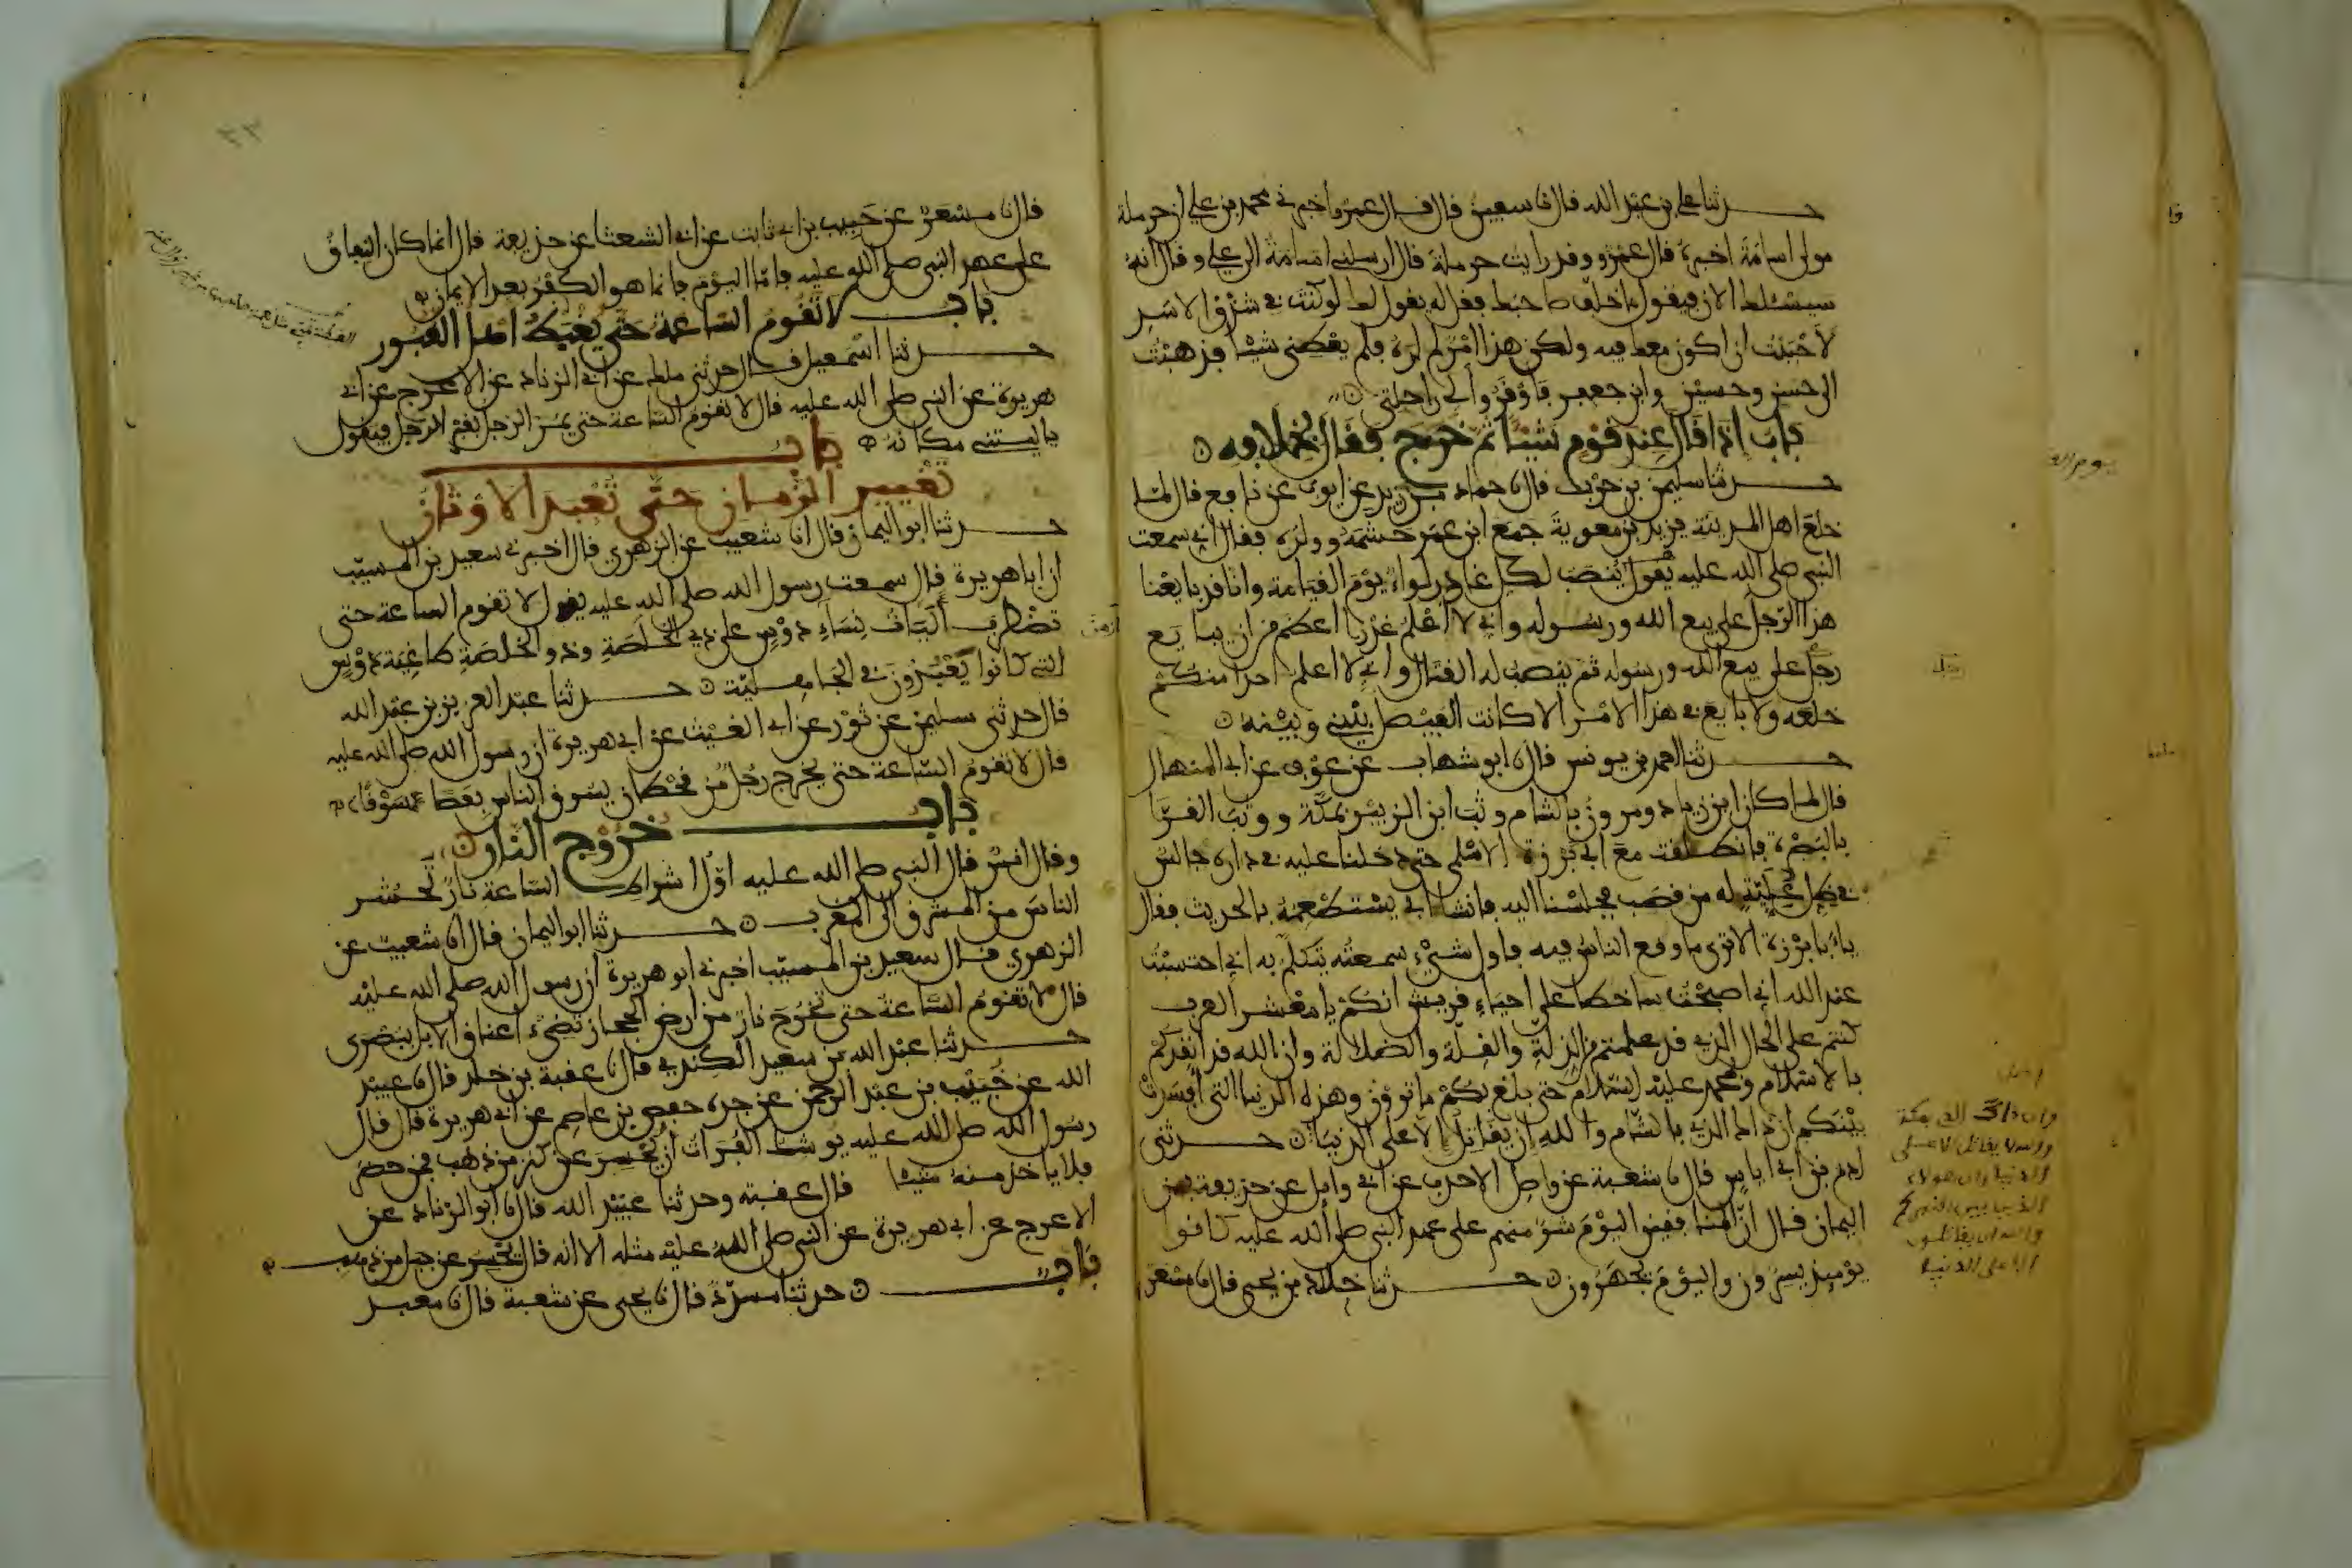 حدثنا علي بن عبد الله قال نا سفين قال قال عمرو واخبرني محمد بن علي ان حرملة
مولى اسامة اخبره قال عمرو وقد رايت حرملة قال ارسلني اسامة الى علي وقال انه
سيسئلك الان فيقول ما خلف صاحبك فقل له يقول لك لو كنت في شدق الاسد
لاحببت ان اكون معك فيه ولكن هذا امر لم اره فلم يعطني شيئا فذهبت
الى حسن وحسين وابن جعفر فاوقروا لي راحلتي
باب اذا قال عند قوم شيئا ثم خرج فقال بخلافه
حدثنا سليمن بن حرب قال نا حماد بن زيد عن ايوب عن نافع قال لما
خلع اهل المدينة يزيد بن معوية جمع ابن عمر حشمه وولده فقال اني سمعت
النبي صلى الله عليه يقول ينصب لكل غادر لواء يوم القيامة وانا قد بايعنا
هذا الرجل على بيع الله ورسوله واني لا اعلم غدرا اعظم من ان يبايع
رجل على بيع الله ورسوله ثم ينصب له القتال واني لا اعلم احدا منكم
خلعه ولا بايع في هذا الامر الا كانت الفيصل بيني وبينه
حدثنا احمد بن يونس قال نا ابو شهاب عن عوف عن ابي المنهال
قال لما كان ابن زياد ومروان بالشام وثب ابن الزبير بمكة ووثب القرا
بالبصرة فانطلقت مع ابي برزة الاسلمي حتى دخلنا عليه في داره جالس
في ظل علية له من قصب فجلسنا اليه فانشا ابي يستطعمه بالحديث فقال
يا ابا برزة الا ترى ما وقع الناس فيه فاول شيء سمعته تكلم به اني احتسبت
عند الله اني اصبحت ساخطا على احياء قريش انكم يا معشر العرب
كنتم على الحال الذي قد علمتم من الذلة والقلة والضلالة وان الله قد انقذكم
بالاسلام وبمحمد عليه السلام حتى بلغ بكم ما ترون وهذه الدنيا التي افسدت
بينكم ان ذاك الذي بالشام والله ان يقاتل الا على الدنيا حدثني
ادم بن ابي اياس قال نا شعبة عن واصل الاحدب عن ابي وايل عن حذيفة بن
اليمان قال ان المنافقين اليوم شر منهم على عهد النبي صلى الله عليه كانوا
يومئذ يسرون واليوم يجهرون حدثنا خلاد بن يحيى قال نا مسعر
وان ذاك الذي بمكة
والله لا يقاتل الا على
الدنيا وان هولاء
الذين بين اظهركم
والله ان يقاتلون
الا على الدنيا
قال نا مسعر عن حبيب بن ابي ثابت عن ابي الشعثا عن حذيفة قال انما كان النفاق
على عهد النبي صلى الله عليه فاما اليوم فانما هو الكفر بعد الايمان
باب لا تقوم الساعة حتى يغبط اهل القبور
حدثنا اسمعيل قال حدثني ملك عن ابي الزناد عن الاعرج عن ابي
هريرة عن النبي صلى الله عليه قال لا تقوم الساعة حتى يمر الرجل بقبر الرجل فيقول
يا ليتني مكانه باب
تغيير الزمان حتى تعبد الاوثان
حدثنا ابو اليمان قال انا شعيب عن الزهري قال اخبرني سعيد بن المسيب
ان ابا هريرة قال سمعت رسول الله صلى الله عليه يقول لا تقوم الساعة حتى
تضطرب اليات نساء دوس على ذي الخلصة وذو الخلصة طاغية دوس
التي كانوا يعبدون في الجاهلية حدثنا عبد العزيز بن عبد الله
قال حدثني سليمن عن ثور عن ابي الغيث عن ابي هريرة ان رسول الله صلى الله عليه
قال لا تقوم الساعة حتى يخرج رجل من قحطان يسوق الناس بعصا
باب خروج النار
وقال انس قال النبي صلى الله عليه اول اشراط الساعة نار تحشر
الناس من المشرق الى المغرب حدثنا ابو اليمان قال انا شعيب عن
الزهري قال سعيد بن المسيب اخبرني ابو هريرة ان رسول الله صلى الله عليه
قال لا تقوم الساعة حتى تخرج نار من ارض الحجاز تضيء اعناق الابل ببصرى
حدثنا عبد الله بن سعيد الكندي قال نا عقبة بن خلد قال نا عبيد
الله عن خبيب بن عبد الرحمن عن جده حفص بن عاصم عن ابي هريرة قال قال
رسول الله صلى الله عليه يوشك الفرات ان يحسر عن كنز من ذهب فمن حضر
فلا ياخذ منه شيئا قال عقبة وحدثنا عبيد الله قال نا ابو الزناد عن
الاعرج عن ابي هريرة عن النبي صلى الله عليه مثله الا انه قال يحسر عن جبل من ذهب
باب حدثنا مسدد قال نا يحيى عن شعبة قال نا معبد